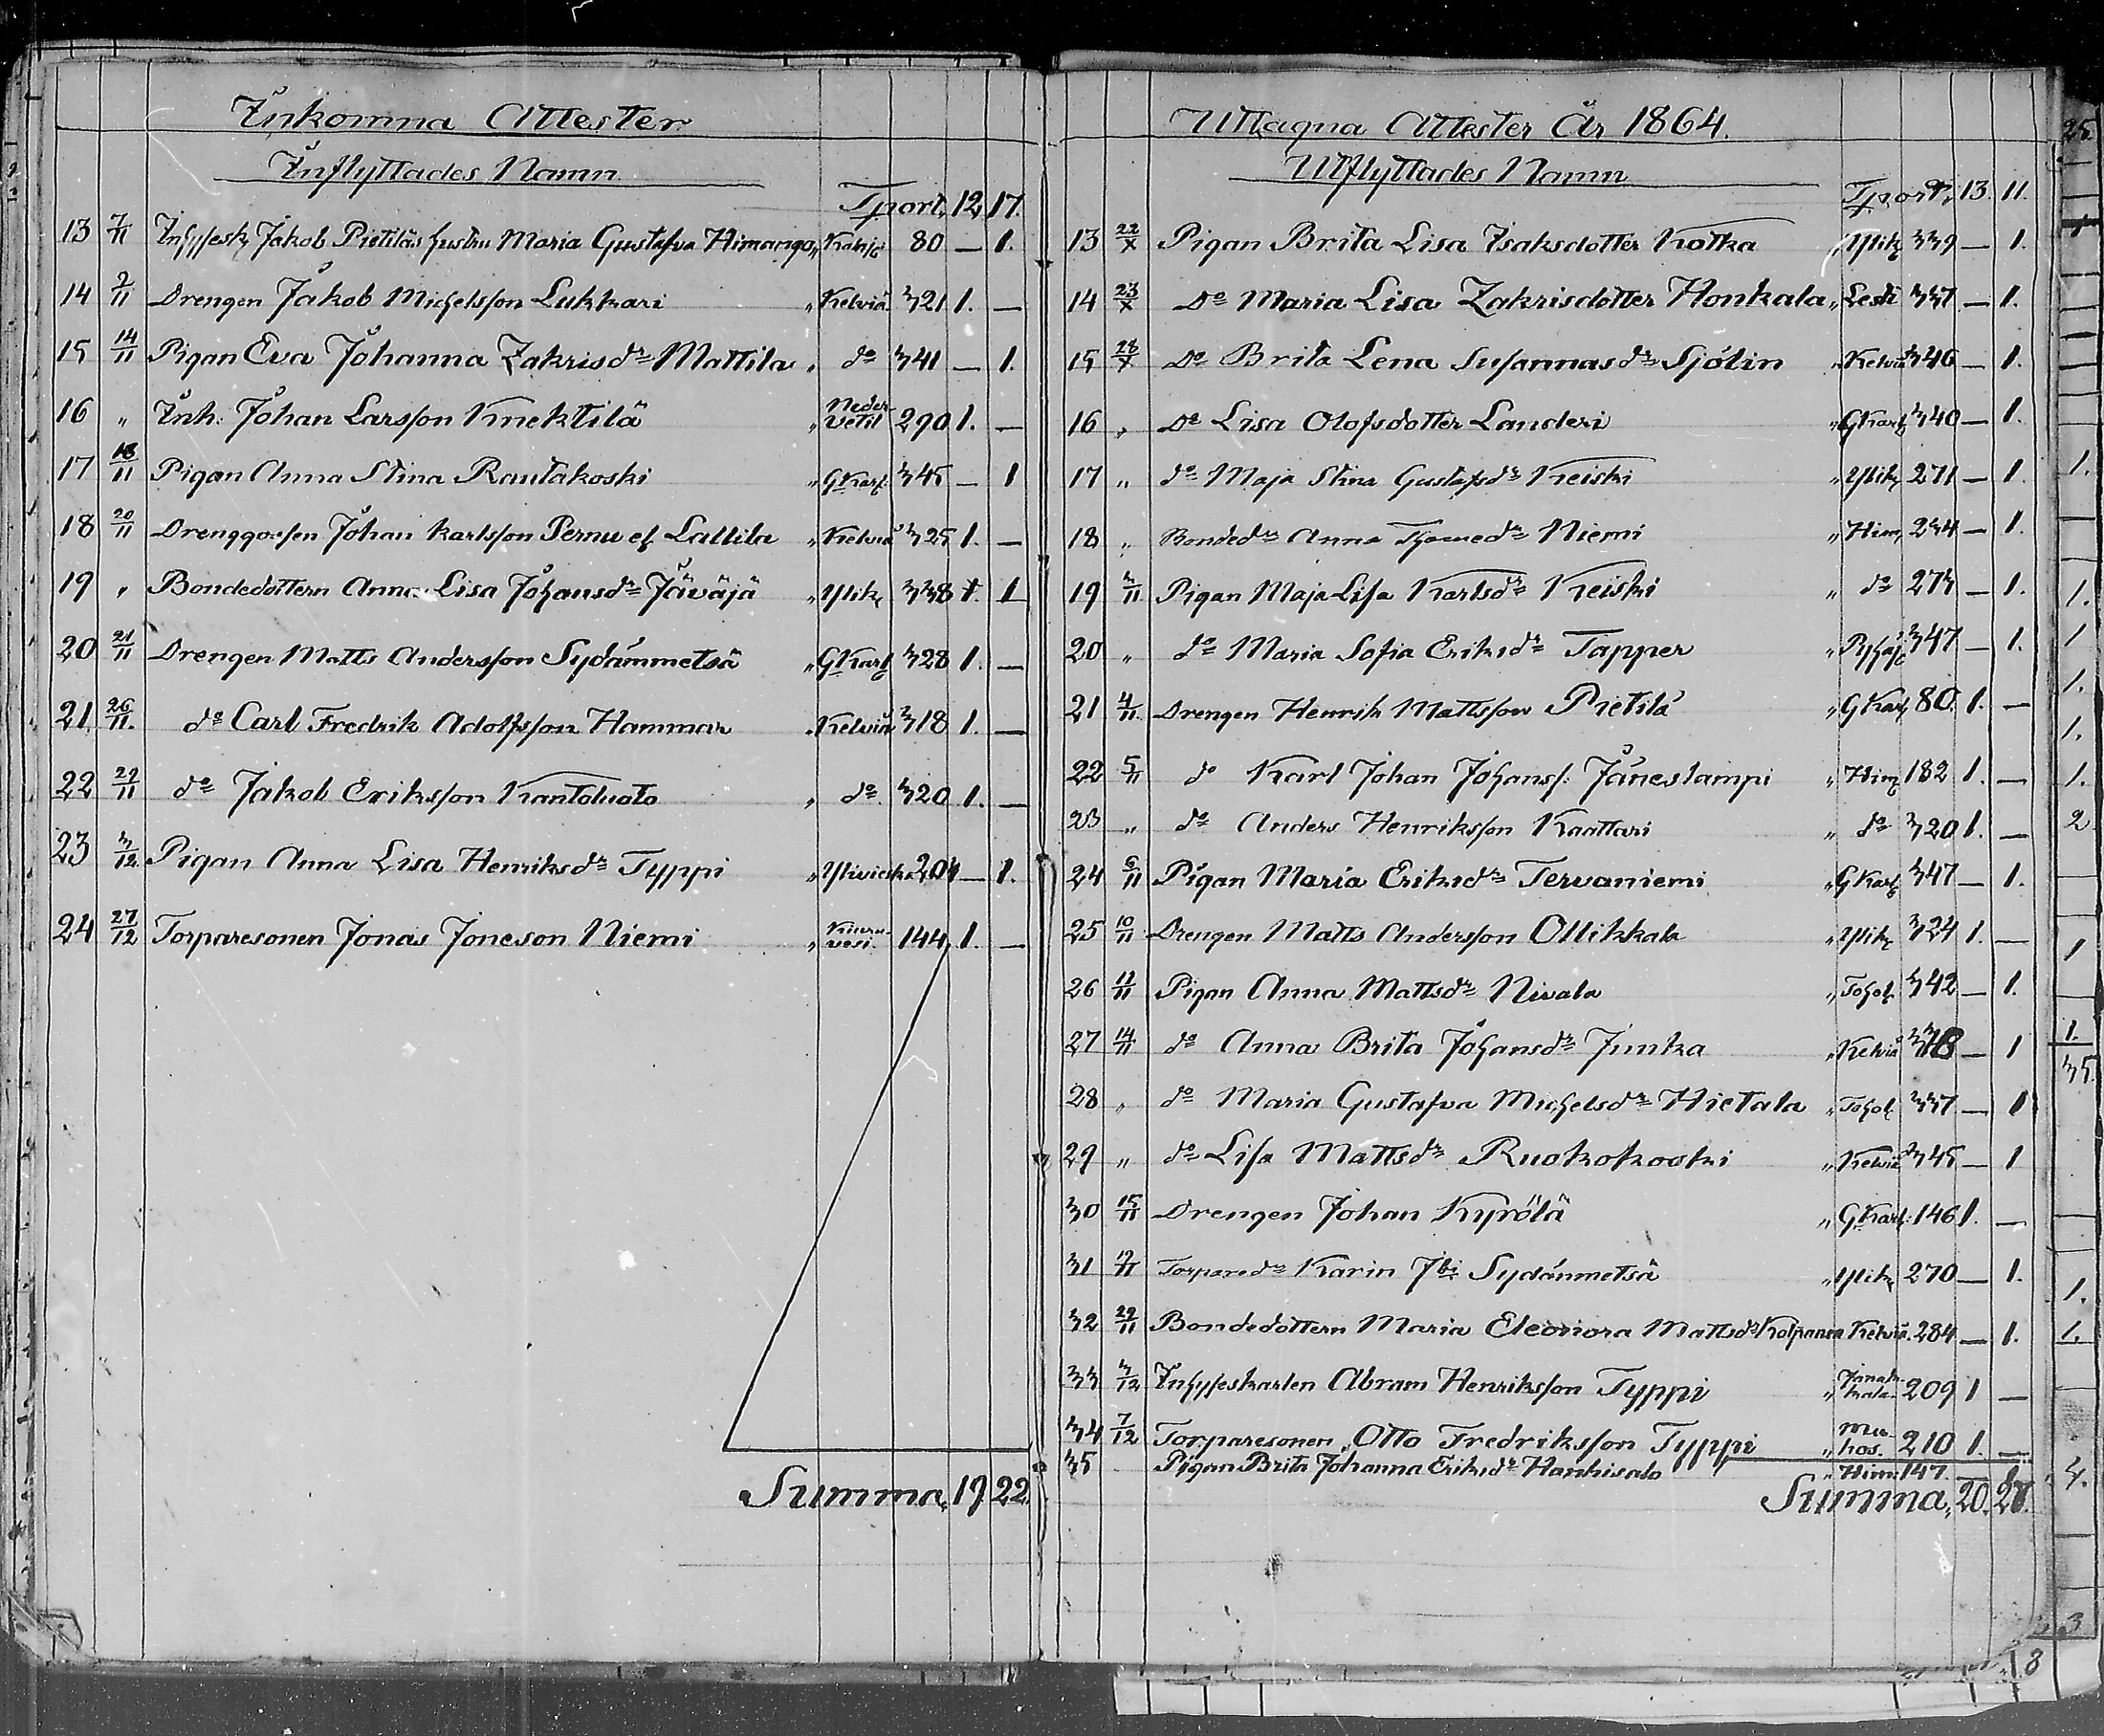 Inkomna Attester
Inflyttades Namn
Tport. 12. 17.
13 7/11 Inhysesk. Jakob Pietiläs hustru Maria Gustafva Himango, 80 — 1.
14 9/11 Drengen Jakob Michelsson Lukkari „ Kelviä 321 1. —
15 14/11 Pigan Eva Johanna Zakrisdr Mattila „ do 341 — 1.
16 „ Inh. Johan Larsson Knektilä „ Nedervetil 290 1. —
17 18/11 Pigan Anna Stina Rautakoski „ GKarl. 345 — 1
18 20/11 Drenggossen Johan Karlsson Pernu el. Lallila „ Kelviä 325 1. —
19 „ Bondedottern Anna Lisa Johansdr Jäväjä „ Ylik. 338 1. 1
20 21/11 Drengen Matts Andersson Sydänmetsä „ GKarl. 328 1. —
21. 26/11. do Carl Fredrik Adolfsson Hammar „ Kelviä 318 1. —
22 29/11 do Jakob Eriksson Kantoluoto „ do 320 1. —
23 3/12. Pigan Anna Lisa Henriksdr Typpi „ Ylivieska 204 — 1.
24 27/12 Torparesonen Jonas Joneson Niemi „ Kiuruvesi 144 1. —
Summa, 19. 22.
Uttagna Attester År 1864.
Utflyttades Namn
Tport, 13. 11.
13 22/X Pigan Brita Lisa Isaksdotter Kotka „ Ylik. 339 — 1.
14 23/X Do Maria Lisa Zakrisdotter Honkala „ Lesti 337 — 1.
15 28/X Do Brita Lena Susannasdr Sjölin „ Kelviä 346 — 1.
16 „ Do Lisa Olofsdotter Landeri „ GKarl. 340 — 1.
17 „ do Maja Stina Gustafsdr Keiski „ Ylik. 271 — 1.
18 „ Bondedr Anna Thomedr Niemi „ Him. 234 — 1.
19 3/11. Pigan Maja Lisa Karlsdr Keiski „ do 273 — 1.
20 „ do Maria Sofia Eriksdr Tapper „ Pyhäj. 347 — 1.
21 4/11. Drengen Henrik Mattsson Pietilä „ GKarl. 80. 1. —
22 5/11 do Karl Johan Johanss. Jäneslampi „ Him. 182 1. —
23 „ do Anders Henriksson Kaattari „ do 320 1. —
24 6/11 Pigan Maria Eriksdr Tervaniemi „ GKarl. 347 — 1.
25 10/11 Drengen Matts Andersson Ollikkala „ Ylik. 324 1. —
26 11/11 Pigan Anna Mattsdr Nivala „ Tohol. 342 — 1.
27 14/11 do Anna Brita Johansdr Junka „ Kelviä — 1
28 „ do Maria Gustafva Michelsdr Hietala „ Tohol. 337 — 1
29 „ do Lisa Mattsdr Ruokokoski „ Kelviä 345 — 1
30 15/11 Drengen Johan Kyrölä „ GKarl. 146 1. —
31 17/11 Torparedr Karin Jbi Sydänmetsä „ Ylik. 270 — 1.
32 29/11 Bondedottern Maria Eleonora Mattsdr Kelviä. 284 — 1.
33 3/12 Inhyseskarlen Abram Henriksson Typpi „ Janakkala 209 1 —
34 7/12 Torparesonen Otto Fredriksson Typpi „ Muhos. 210 1. —
35 Pigan Brita Johanna Eriksdr Hanhisalo „ Him. 147. 1
Summa, 20. 27.
25.
1
1.
1.
1
1.
1.
1.
2
1
1.
35.
1.
1.
4.
3
8